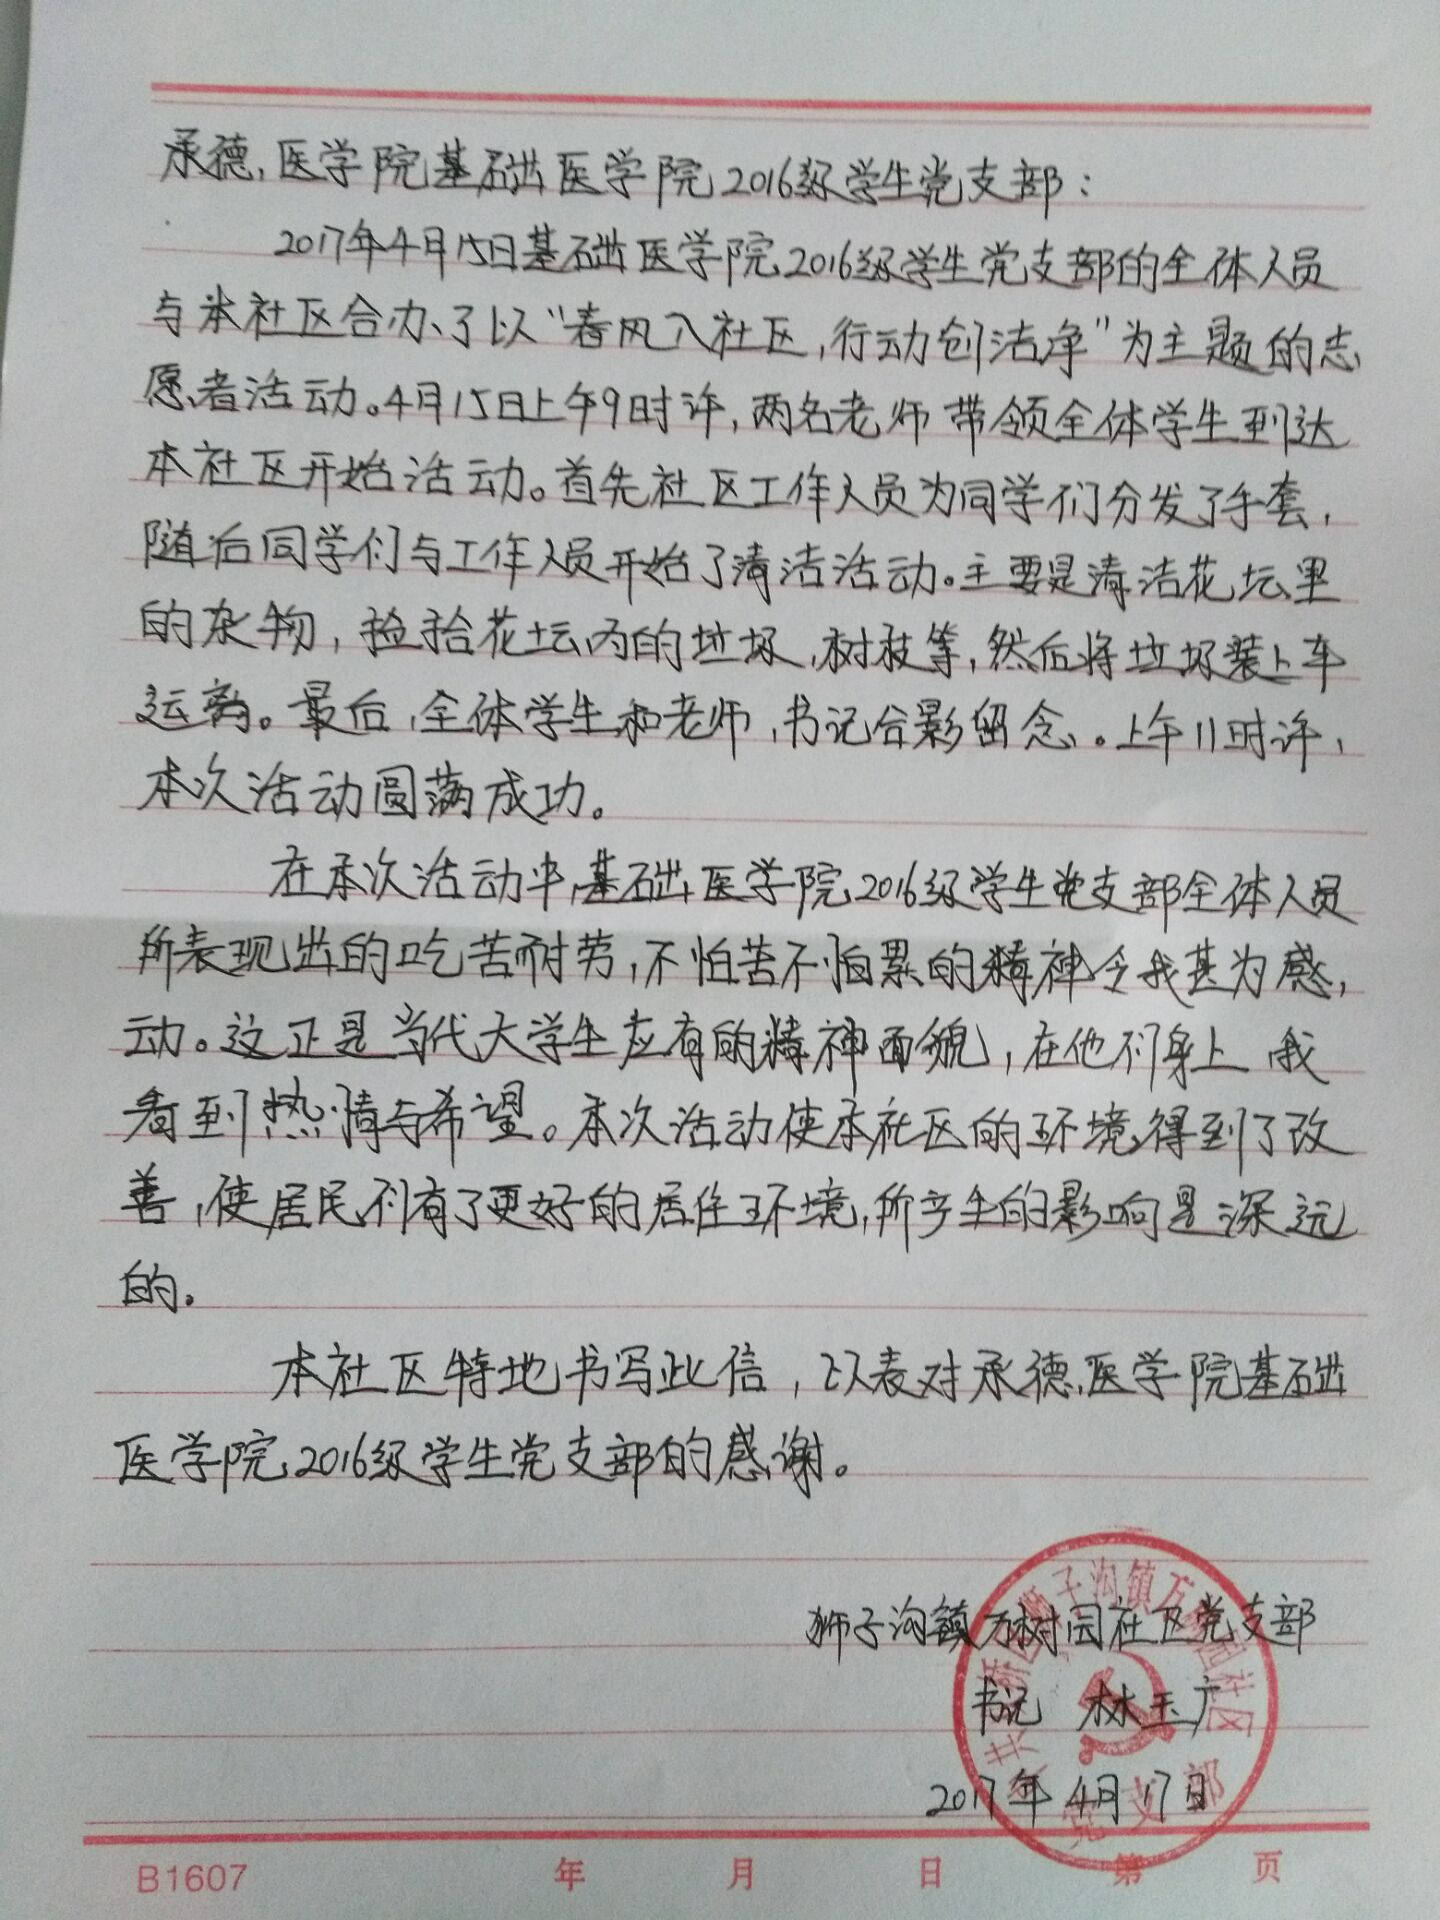 承德医学院基础医学院2016级学生党支部：
2017年4月15日基础医学院2016级学生党支部的全体人员
与本社区合办了以“春风入社区，行动创洁净”为主题的志
愿者活动。4月15日上午9时许，两名老师带领全体学生到达
本社区开始活动。首先社区工作人员为同学们分发了手套，
随后同学们与工作人员开始了清洁活动。主要是清洁花坛里
的杂物，捡拾花坛内的垃圾，树枝等，然后将垃圾装上车
运离。最后，全体学生和老师，书记合影留念。上午11时许，
本次活动圆满成功。
在本次活动中，基础医学院2016级学生党支部全体人员
所表现出的吃苦耐劳，不怕苦不怕累的精神令我甚为感
动。这正是当代大学生应有的精神面貌，在他们身上我
看到热情与希望。本次活动使本社区的环境得到了改
善，使居民们有了更好的居住环境，所产生的影响是深远
的。
本社区特地书写此信，以表对承德医学院基础
医学院2016级学生党支部的感谢。
狮子沟镇万树园社区党支部
书记 林玉广
2017年4月17日
B1607 年 月 日 第 页